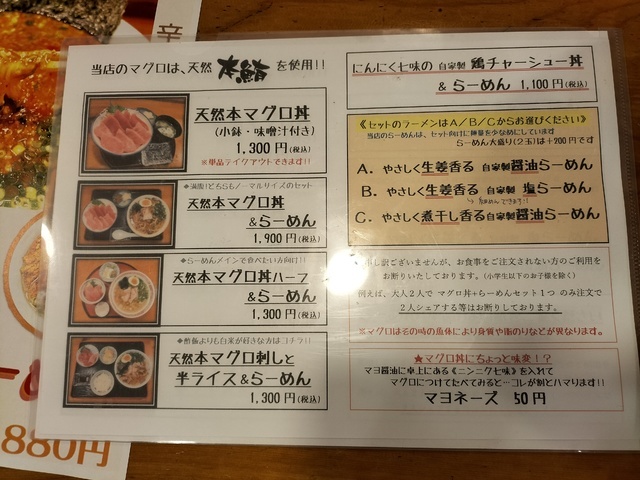 当店のマグロは、天然 本鮪 を使用!!
天然本マグロ丼
(小鉢・味噌汁付き)
1,300 円(税込)
※単品テイクアウトできます!!
◆満腹!どちらもノーマルサイズのセット
天然本マグロ丼
&らーめん
1,900 円(税込)
◆らーめんメインで食べたい方向け!!
天然本マグロ丼ハーフ
&らーめん
1,300 円(税込)
◆酢飯よりも白米が好きな方はコチラ!!
天然本マグロ刺しと
半ライス&らーめん
1,300 円(税込)
にんにく七味の 自家製 鶏チャーシュー丼
& らーめん 1,100 円(税込)
《セットのラーメンはA/B/Cからお選びください》
当店のらーめんは、セット向けに麺量を少なめにしています
らーめん大盛り(2玉)は+200円です
A. やさしく生姜香る 自家製醤油らーめん
B. やさしく生姜香る 自家製 塩らーめん
できます!!
C. やさしく煮干し香る自家製醤油らーめん
し訳ございませんが、お食事をご注文されない方のご利用を
お断りいたしております。(小学生以下のお子様を除く)
例えば、大人2人で マグロ丼+らーめんセット1つ のみ注文で
2人シェアする等はお断りしております。
※マグロはその時の魚体により身質や脂のりなどが異なります。
★マグロ丼にちょっと味変!?
マヨ醤油に卓上にある《ニンニク七味》を入れて
マグロにつけてたべてみると…コレが割とハマります!!
マヨネーズ 50 円
辛
880円